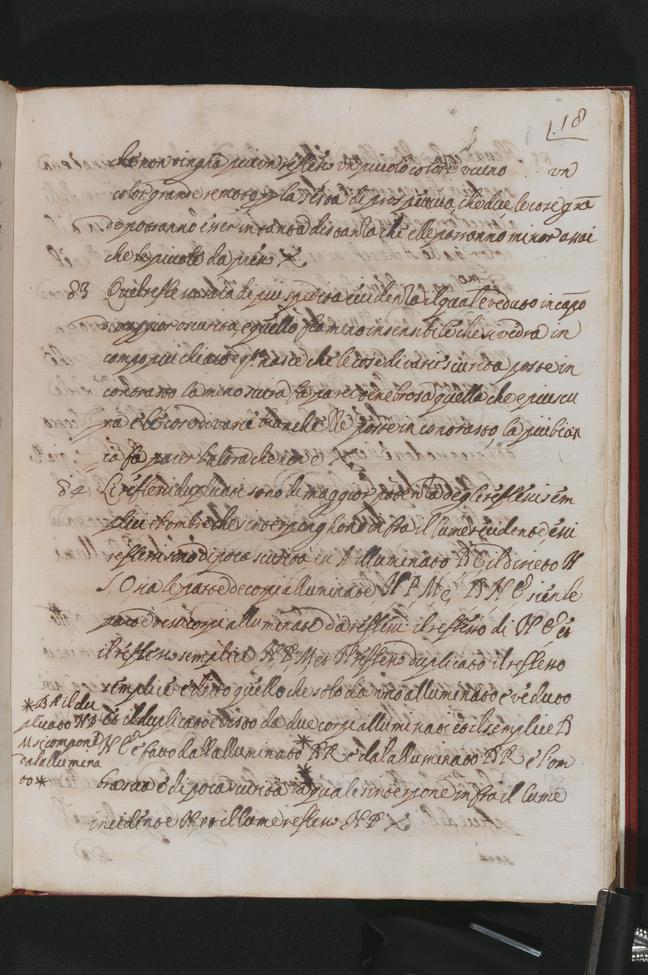 118
che non tingha piu in reflesso un picolo colore vicino un
color grande remoto p la testa di prospettiva che dice le cose gra
de potranno essere in tanta distantia che elle parranno minor assai
che le picole da preso
83 Quel reflesso sara di piu spedita evidentia il quale è veduto in capo
di maggior oscurita e quello fia meno insensibile che si vedra in
campo piu chiaro e q.to nasce che le cose di varie scurita poste in
contrasto la meno scura fa parer tenebrosa quella che è piu scu
ra e le cose di varia bianchezze poste in contrasto la piu bian
ca fa parer l'altra che non è
84 Li reflessi duplicati sono di maggior potentia degli reflessi sem
plici et l'ombre che s'interpinghono infra il lume incidente e essi
reflessi sono di poca scurita
S. Ora le parte de corpi alluminate
parte de essi corpi alluminate da reflessi il reflesso di
il reflesso semplice reflesso duplicato il reflesso
semplice è detto quello che solo da uno alluminato è veduto
et il duplicato è visto da due corpi alluminati et il semplice
è fatto dall alluminato B R e dal alluminato e l'om
bra sua è di poca scurita la quale s'interpone infra il lume
incidente N et il lume reflesso N P
* il du
plicato
si compone
dal allumina
to *